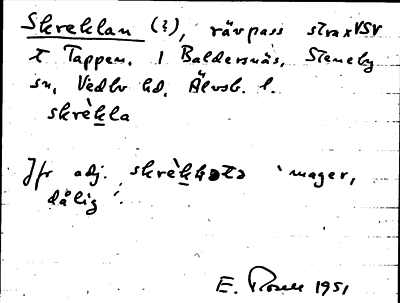 Skreklan (?), rävpass strax VSV
t Tappen. i Baldersnäs, Steneby
sn, Vedbo hd. Älvsb. l.
skrèkla
Jfr adj. skrèkkətə 'mager,
dålig'.
E. Rosell 1951